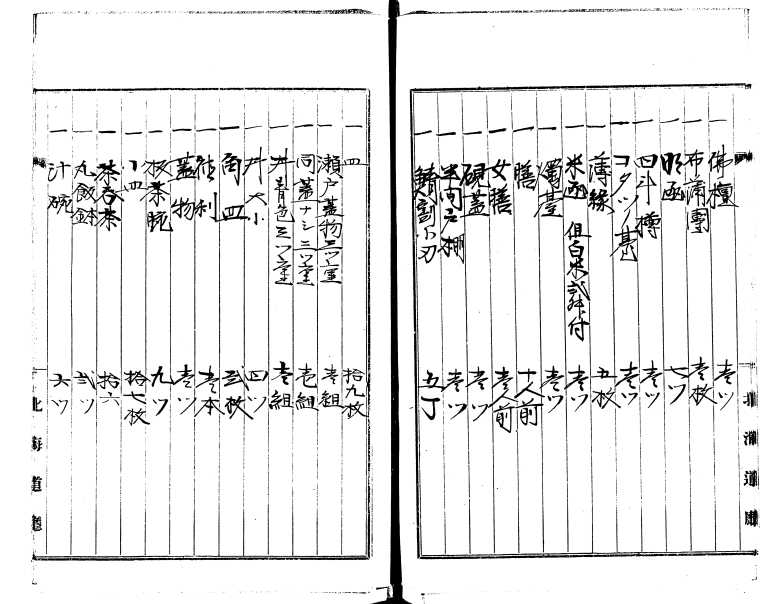 一 佛壇 壱ツ
一 布蒲團 壱枚
一 明函 七ツ
一 四斗樽 壱ツ
一 コタツ臺 壱ツ
一 薄縁 五枚
一 米函 但白米弐斗付 壱ツ
一 燭臺 壱ツ
一 膳 十人前
一 女膳 壱人前
一 硯蓋 壱ツ
一 半間戸棚 壱ツ
一 鯡割小刀 五丁
北海道廳
一 皿 拾九枚
一 瀬戸蓋物三ツ重 壱組
一 同蓋ナシ三ツ重 壱組
一 丼青色三ツ重 壱組
一 丼大小 四ツ
一 角皿 弐枚
一 徳利 壱本
一 蓋物 壱ツ
一 飯茶碗 九ツ
一 小皿 拾七枚
一 茶呑茶 拾六
一 丸飯鉢 弐ツ
一 汁碗 六ツ
北海道廳